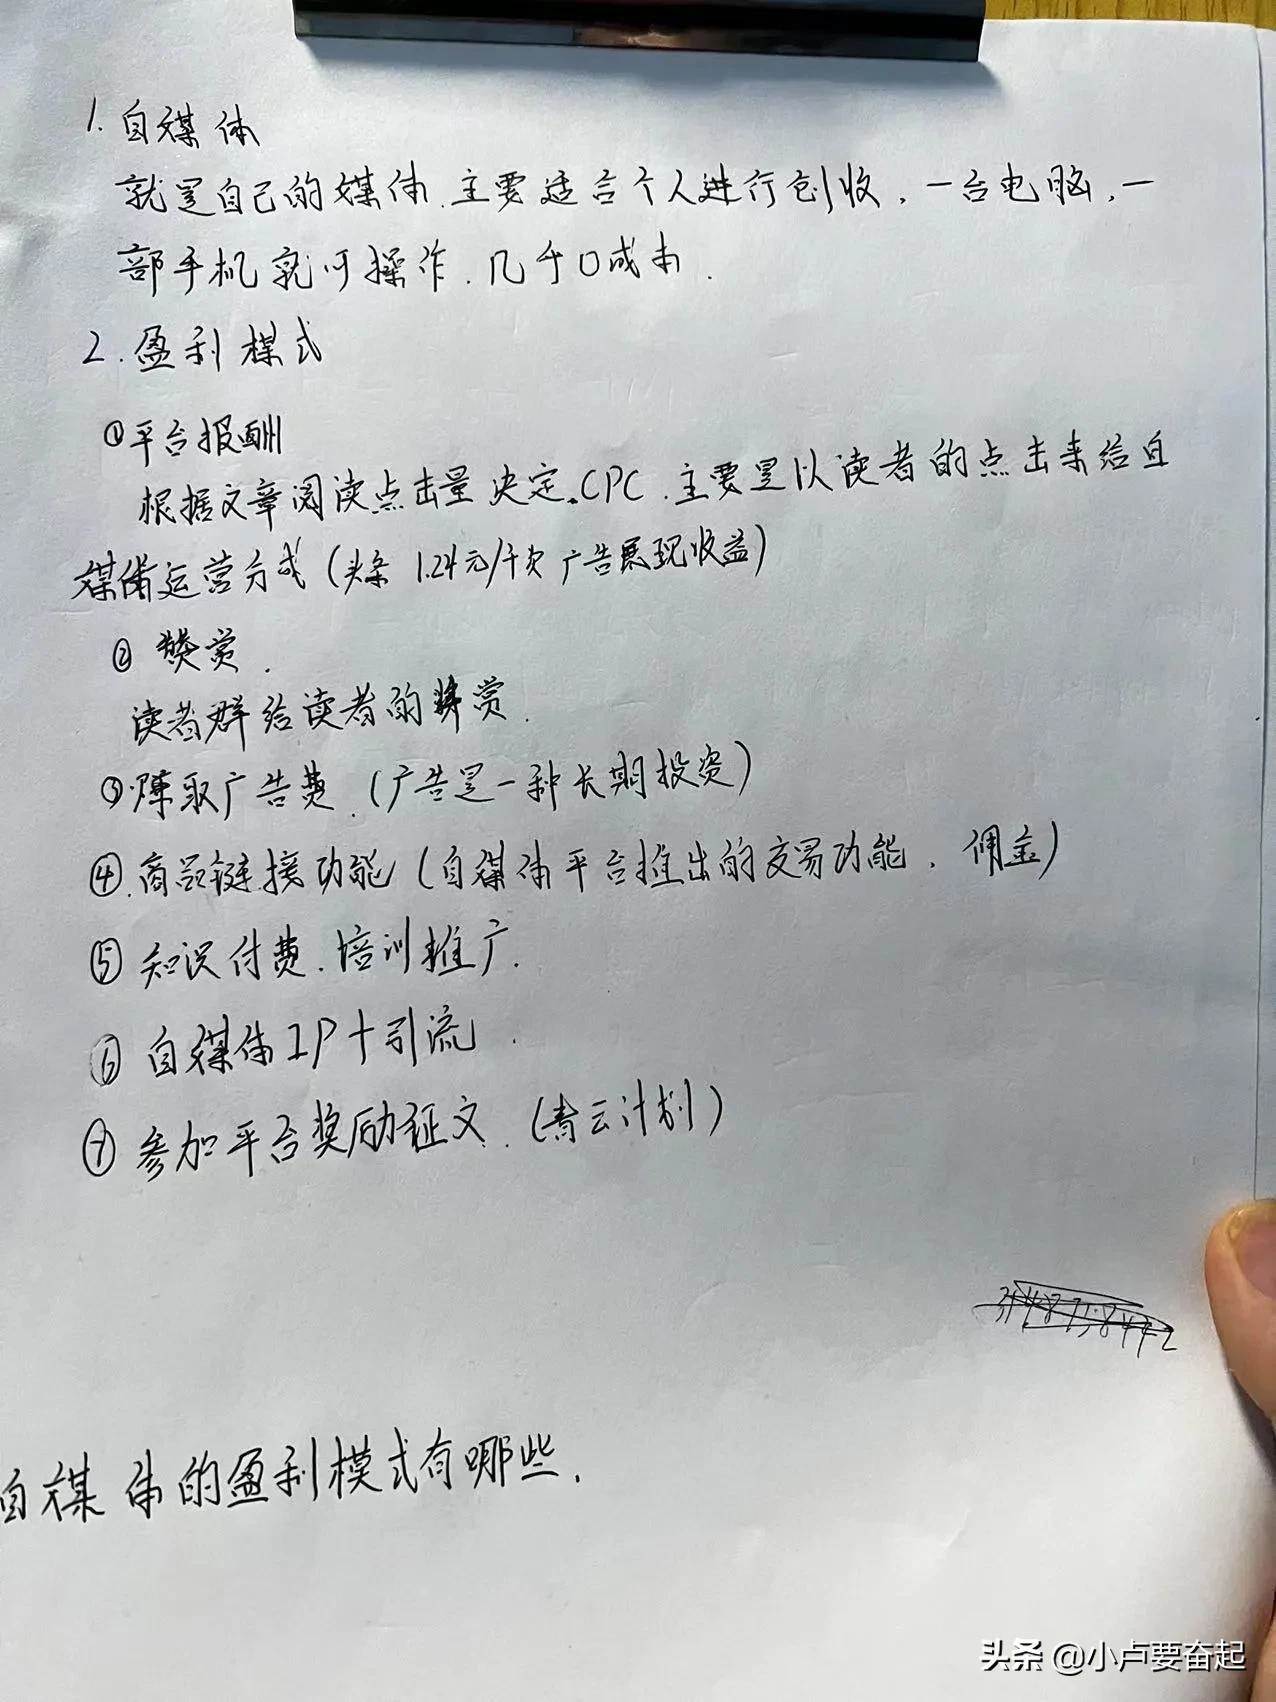 1. 自媒体
就是自己的媒体.主要适合个人进行创收,一台电脑,一
部手机就可操作.几乎0成本.
2.盈利模式
①平台报酬
根据文章阅读点击量决定.CPC.主要是以读者的点击来给自
媒体运营方式(头条 1.24元/千次广告展现收益)
② 赞赏.
读者群给读者的奖赏.
③赚取广告费.(广告是一种长期投资)
④.商品链接功能(自媒体平台推出的交易功能,佣金)
⑤ 知识付费.培训推广.
⑥ 自媒体IP+引流.
⑦ 参加平台奖励征文.(青云计划)
自媒体的盈利模式有哪些.
头条 @小卢要奋起